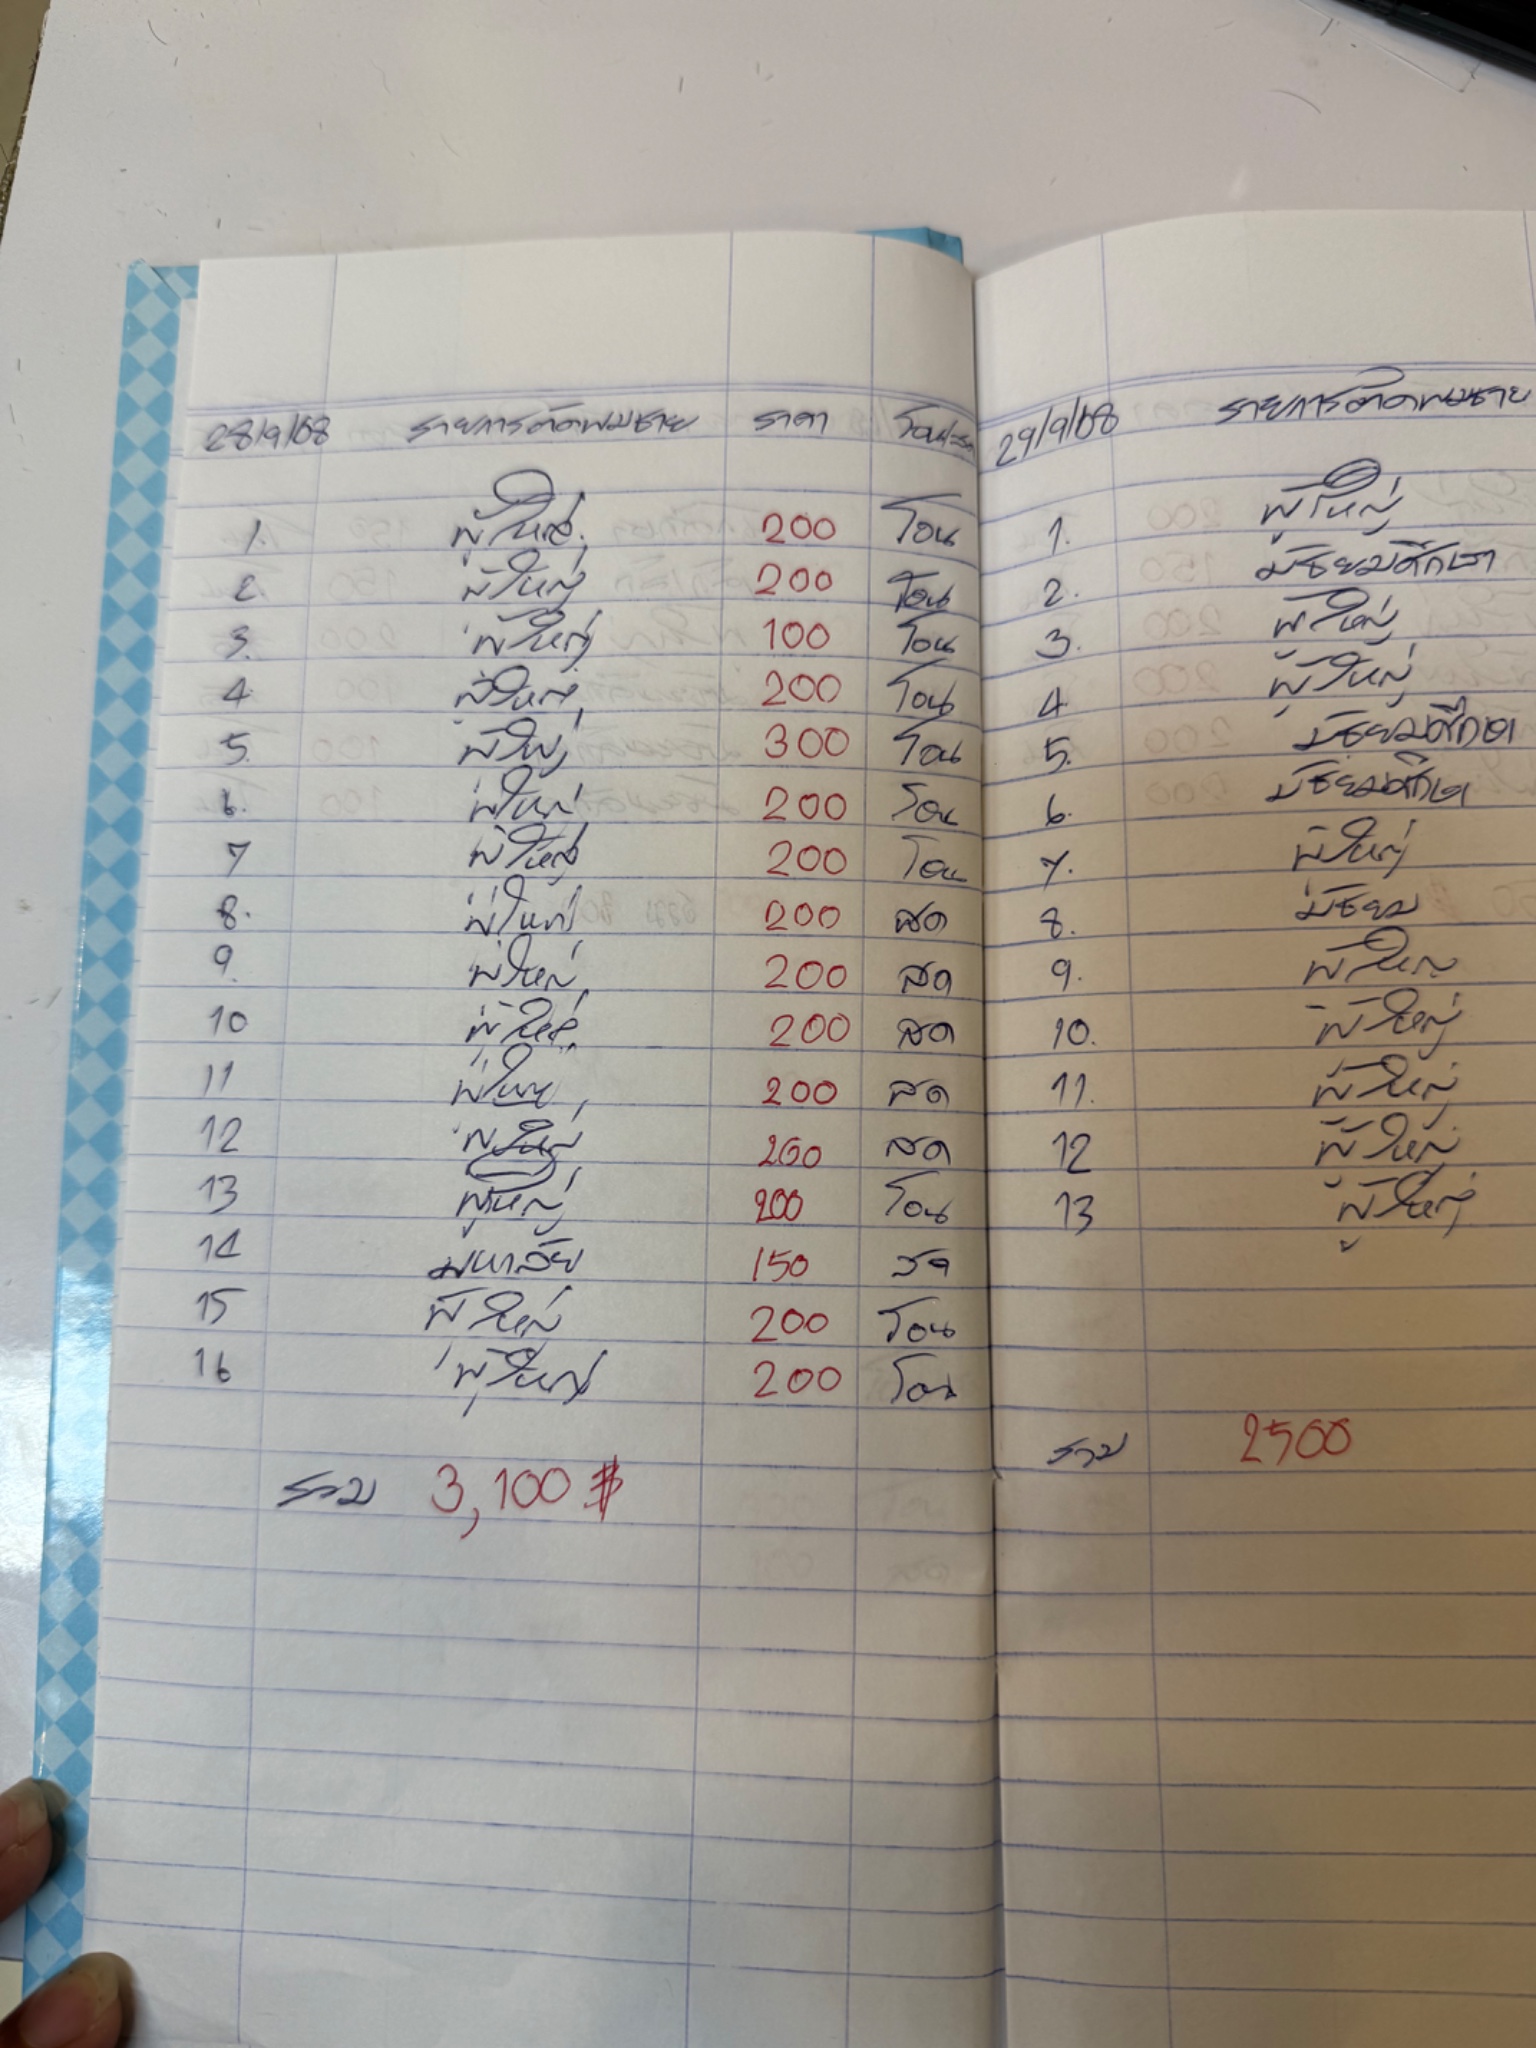 28/9/68 รายการตัดผมชาย ราคา โอน/สด
1. ผู้ใหญ่ 200 โอน
2. ผู้ใหญ่ 200 โอน
3. ผู้ใหญ่ 100 โอน
4. ผู้ใหญ่ 200 โอน
5. ผู้ใหญ่ 300 โอน
6. ผู้ใหญ่ 200 โอน
7 ผู้ใหญ่ 200 โอน
8. ผู้ใหญ่ 200 สด
9. ผู้ใหญ่ 200 สด
10 ผู้ใหญ่ 200 สด
11 ผู้ใหญ่ 200 สด
12 ผู้ใหญ่ 200 สด
13 ผู้ใหญ่ 200 โอน
14 มหาลัย 150 สด
15 ผู้ใหญ่ 200 โอน
16 ผู้ใหญ่ 200 โอน
รวม 3,100 ฿
29/9/68 รายการตัดผมชาย
1. ผู้ใหญ่
2. มัธยมศึกษา
3. ผู้ใหญ่
4 ผู้ใหญ่
5. มัธยมศึกษา
6. มัธยมศึกษา
7. ผู้ใหญ่
8. มัธยม
9. ผู้ใหญ่
10. ผู้ใหญ่
11. ผู้ใหญ่
12 ผู้ใหญ่
13 ผู้ใหญ่
รวม 2500